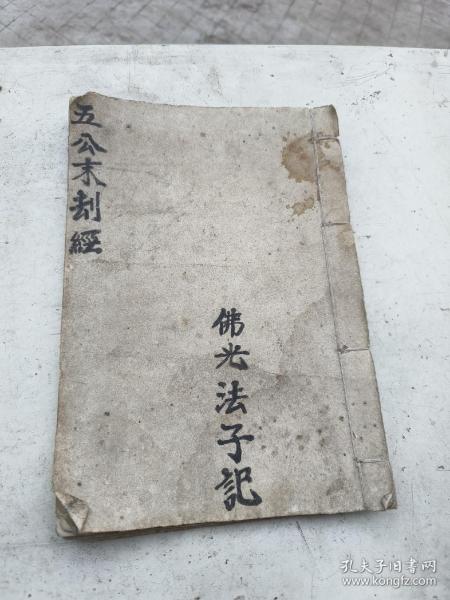 五公末刼經
佛光法子記
孔夫子旧书网
www.kongfz.com